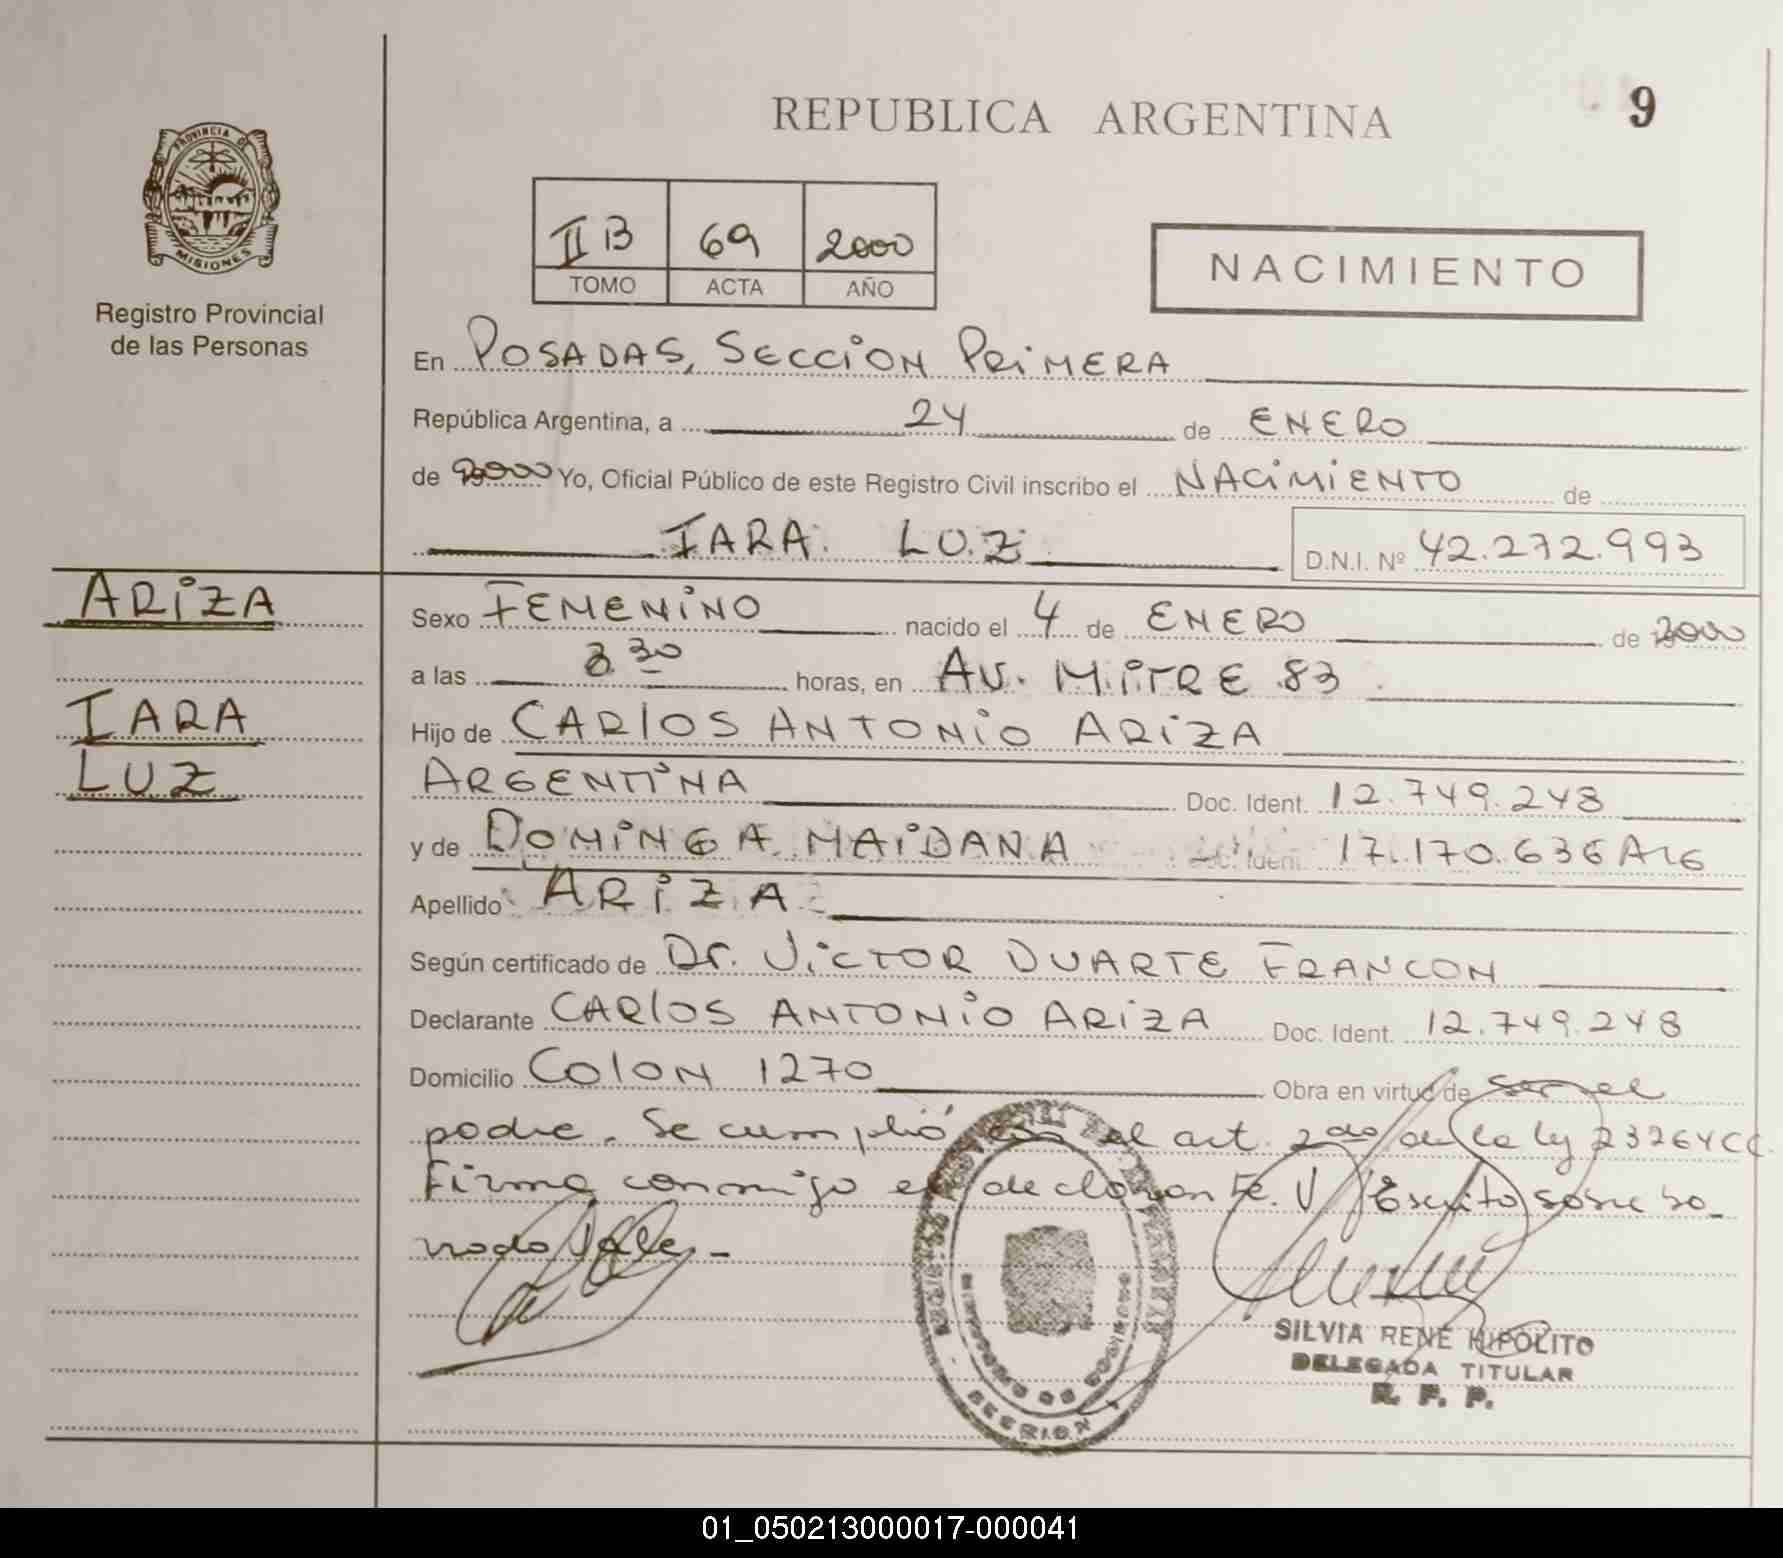 REPUBLICA ARGENTINA
9
PROVINCIA DE
MISIONES
Registro Provincial
de las Personas
II B 69 2000
TOMO ACTA AÑO
NACIMIENTO
En POSADAS, SECCION PRIMERA
República Argentina, a 24 de ENERO
de 2000 Yo, Oficial Público de este Registro Civil inscribo el NACIMIENTO de
IARA LUZ D.N.I. Nº 42.272.993
ARIZA
IARA
LUZ
Sexo FEMENINO nacido el 4 de ENERO de 2000
a las 8 30 horas, en AV. MITRE 83
Hijo de CARLOS ANTONIO ARIZA
ARGENTINA Doc. Ident. 12.749.248
y de DOMINGA MAIDANA Doc. Ident. 17.170.636 ARG
Apellido ARIZA
Según certificado de Dr. VICTOR DUARTE FRANCON
Declarante CARLOS ANTONIO ARIZA Doc. Ident. 12.749.248
Domicilio COLON 1270 Obra en virtud de ser el
padre. Se cumplió con el art. 2do de la ley 23264 CC.
Firma conmigo el declarante. Escrito sobre bo_
rrado Vale_
SECCION 1
SILVIA RENE HIPOLITO
DELEGADA TITULAR
R. P. P.
01_050213000017-000041